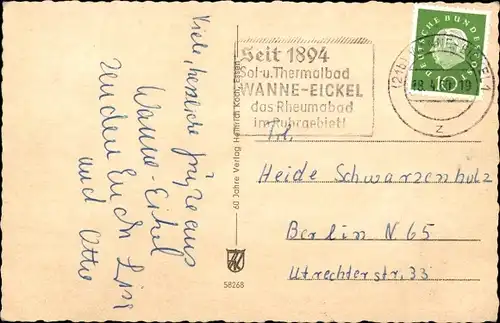 Viele, herzliche Grüße aus
Wanne-Eickel
senden Euch Lisa
und Otto
60 Jahre Verlag Heinrich Koch, Essen
58268
Seit 1894
Sol-u. Thermalbad
WANNE-EICKEL
das Rheumabad
im Ruhrgebiet!
DEUTSCHE BUNDESPOST
10
(21b) WANNE-EICKEL 1
19
z
Frl.
Heide Schwarzenholz
Berlin N 65
Utrechterstr. 33